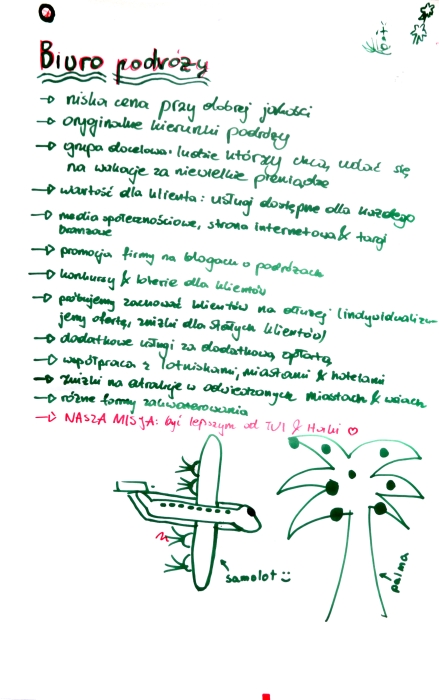 Biuro podróży
→ niska cena przy dobrej jakości
→ oryginalne kierunki podróży
→ grupa docelowa: ludzie którzy chcą udać się
na wakacje za niewielkie pieniądze
→ wartość dla klienta: usługi dostępne dla każdego
→ media społecznościowe, strona internetowa & targi
branżowe
→ promocja firmy na blogach o podróżach
→ konkursy & loterie dla klientów
→ próbujemy zachować klientów na dłużej (indywidualizu-
jemy ofertę, zniżki dla stałych klientów)
→ dodatkowe usługi za dodatkową opłatą
→ współpraca z lotniskami, miastami & hotelami
→ zniżki na atrakcje w odwiedzonych miastach & wsiach
→ różne formy zakwaterowania
→ NASZA MISJA: być lepszym od TUI & Itaki ♡
samolot :)
palma